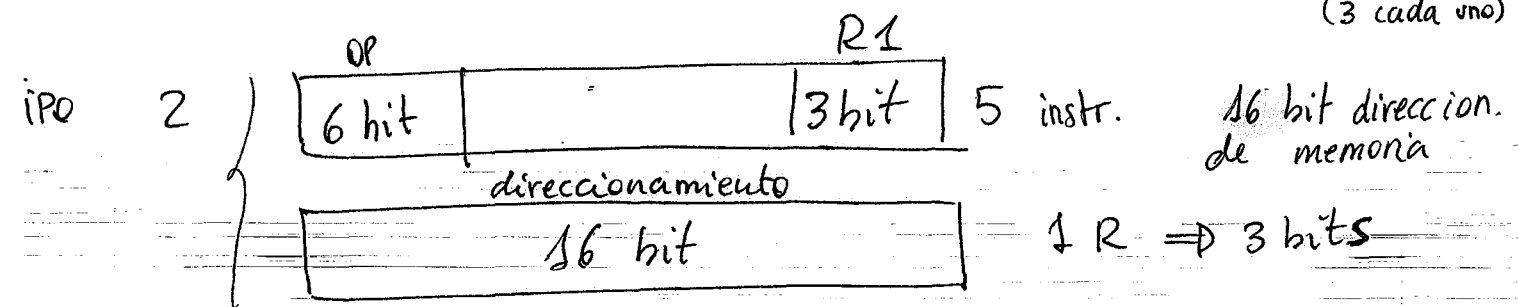 (3 cada uno)
OP R1
iPO 2 6 bit 3 bit 5 instr. 16 bit direccion.
de memoria
direccionamiento
16 bit 1 R ⇒ 3 bits